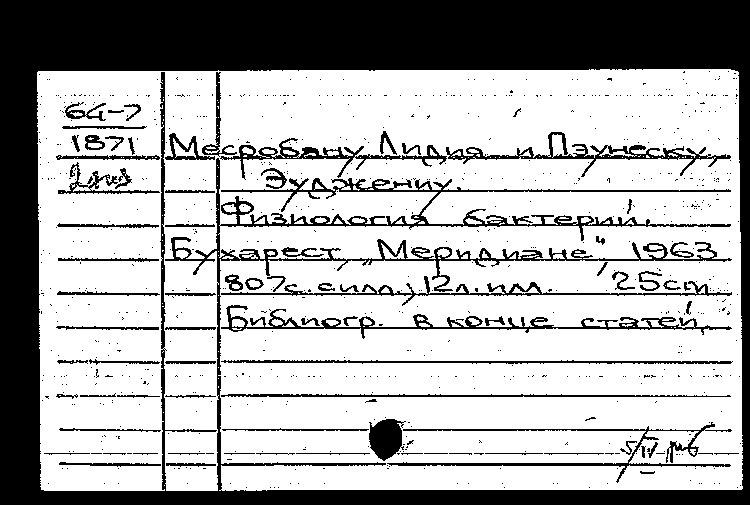 64-7
1871 Месробану, Лидия и Пэунеску,
2 экз Эуджениу.
Физиология бактерий.
Бухарест, „Меридиане", 1963
807с. с илл.; 12л. илл. 25cm
Библиогр. в конце статей.
5/IV